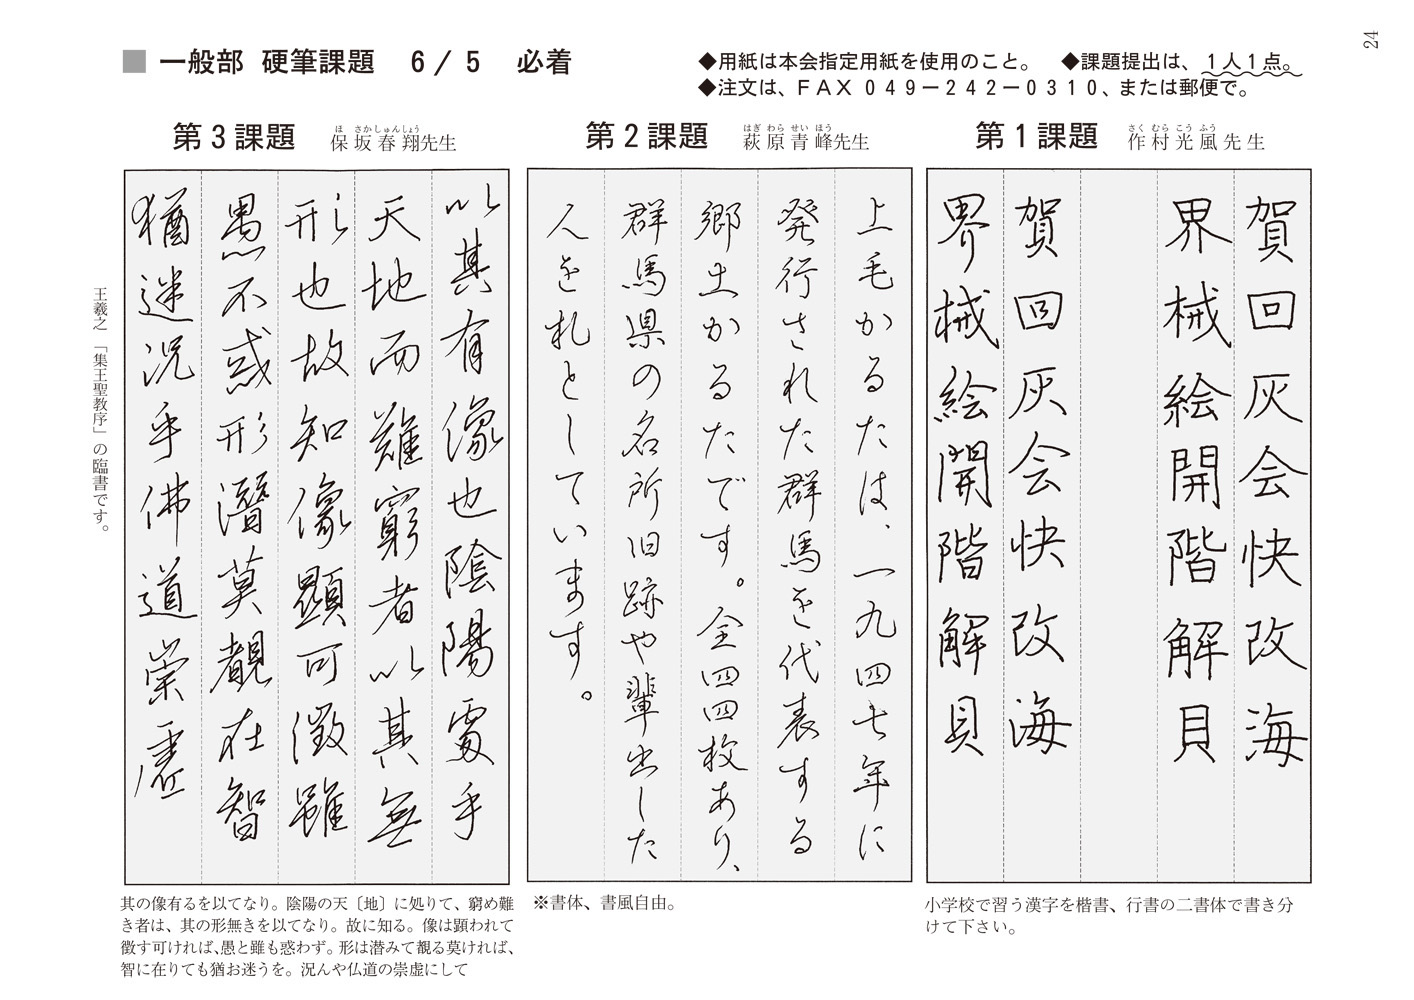 24
■ 一般部 硬筆課題 6/5 必着
◆用紙は本会指定用紙を使用のこと。 ◆課題提出は、1人1点。
◆注文は、FAX049-242-0310、または郵便で。
第1課題 作村光風先生
さくむらこうふう
賀回灰会快改海
界械絵開階解貝
賀回灰会快改海
界械絵開階解貝
小学校で習う漢字を楷書、行書の二書体で書き分
けて下さい。
第2課題 萩原青峰先生
はぎわらせいほう
上毛かるたは、一九四七年に
発行された群馬を代表する
郷土かるたです。全四四枚あり、
群馬県の名所旧跡や輩出した
人を札としています。
※書体、書風自由。
第3課題 保坂春翔先生
ほさかしゅんしょう
以其有像也陰陽處乎
天地而難窮者以其無
形也故知像顯可徴雖
愚不惑形潛莫覩在智
猶迷況乎佛道崇虛
王羲之「集王聖教序」の臨書です。
其の像有るを以てなり。陰陽の天〔地〕に処りて、窮め難
き者は、其の形無きを以てなり。故に知る。像は顕われて
徴す可ければ、愚と雖も惑わず。形は潜みて覩る莫ければ、
智に在りても猶お迷うを。況んや仏道の崇虚にして